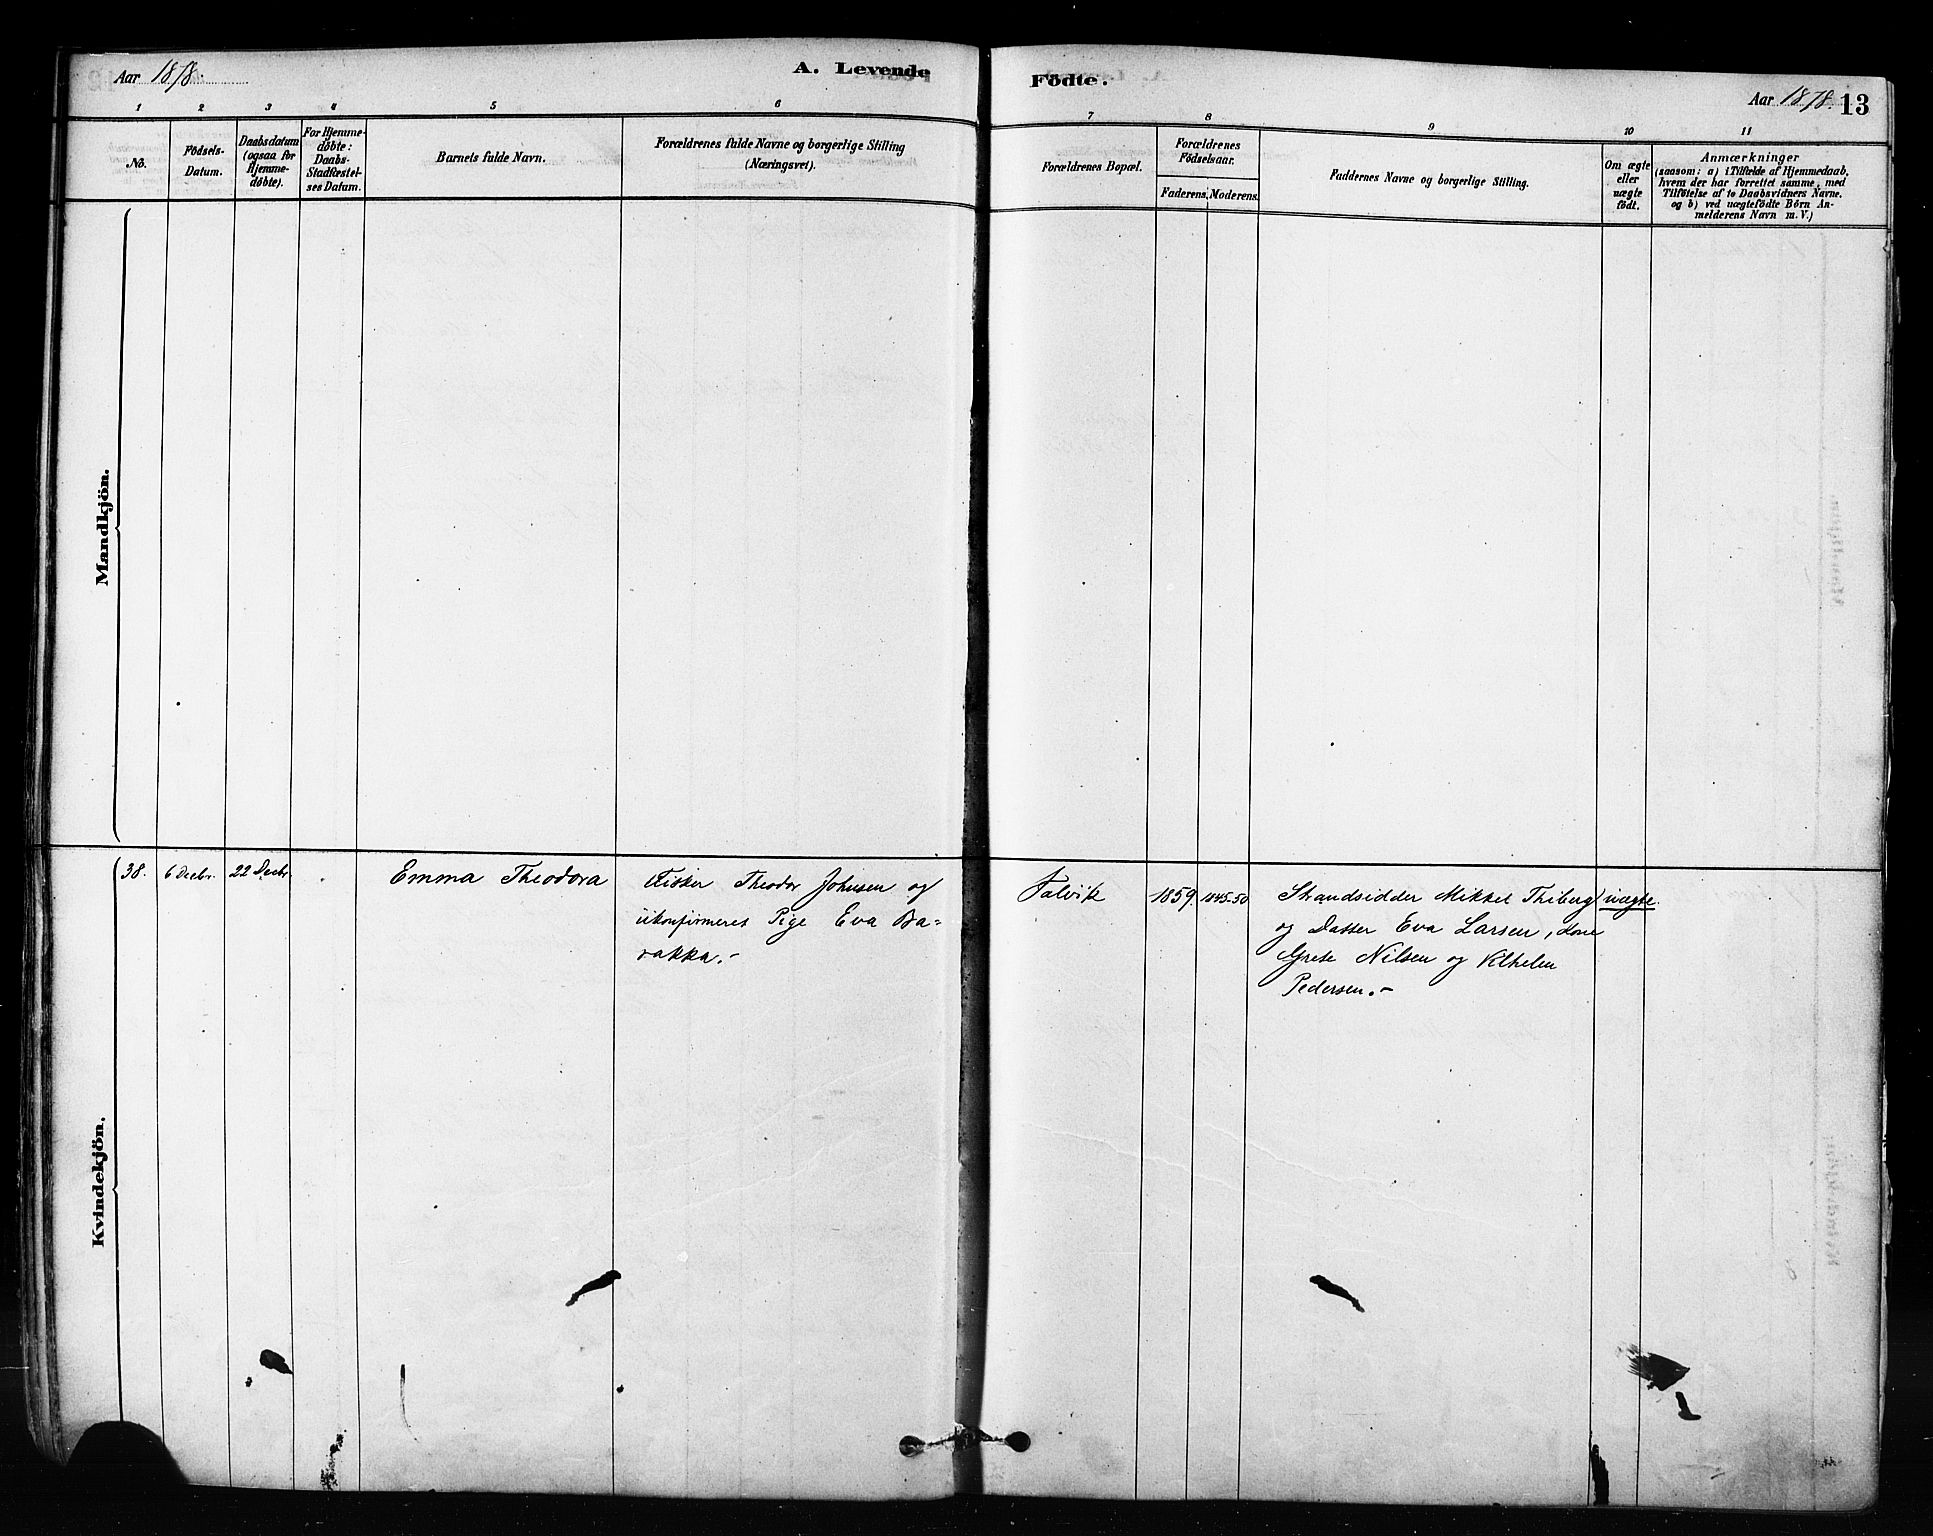 Aar 1878.
A. Levende
Födte.
Aar 1878. 13
1 2 3 4 5 6 7 8 9 10 11
No.
Födsels-
Datum.
Daabsdatum
(ogsaa for
Hjemme-
döbte).
For Hjemme-
döbte:
Daabs-
Stadfæstel-
ses Datum.
Barnets fulde Navn.
Forældrenes fulde Navne og borgerlige Stilling
(Næringsvei).
Forældrenes Bopæl.
Forældrenes
Födselsaar.
Faderens. Moderens.
Faddernes Navne og borgerlige Stilling.
Om ægte
eller
uægte
födt.
Anmærkninger
(saasom: a) i Tilfælde af Hjemmedaab,
hvem der har forrettet samme, med
Tilföielse af to Daabsvidners Navne,
og b) ved uægtefödte Börn An-
melderens Navn m. V.)
Mandkjön.
Kvindekjön.
38. 6 Decbr. 22 Decbr.
Emma Theodora
Fisker Theodor Johnsen og
ukonfirmeret Pige Eva Ba=
rakka.-
Talvik
1859. 1845-50
Strandsidder Mikkel Thiberg
og Datter Eva Larsen, Kone
Grete Nilsen og Vilhelm
Pedersen.-
uægte.